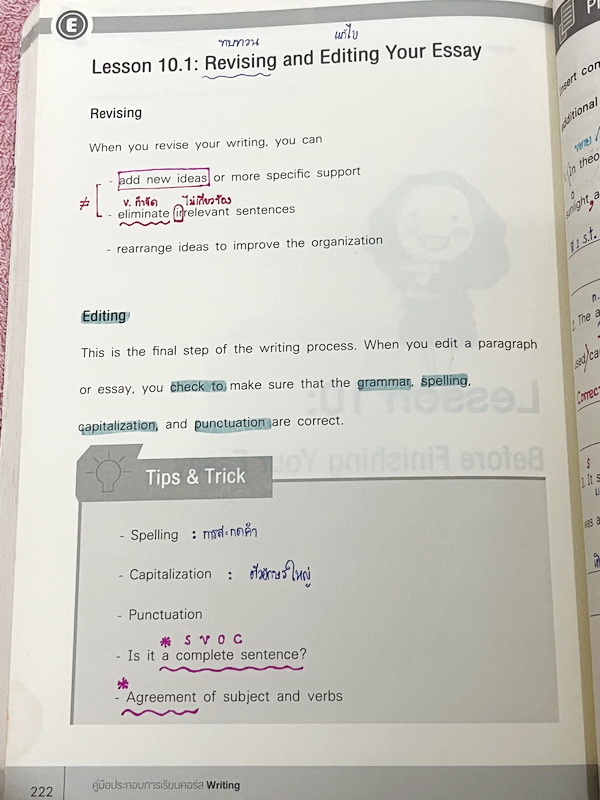 E
ทบทวน แก้ไข
Lesson 10.1: Revising and Editing Your Essay
Revising
When you revise your writing, you can
- add new ideas or more specific support
≠ v. กำจัด ไม่เกี่ยวข้อง
- eliminate irrelevant sentences
- rearrange ideas to improve the organization
Editing
This is the final step of the writing process. When you edit a paragraph
or essay, you check to make sure that the grammar, spelling,
capitalization, and punctuation are correct.
Tips & Trick
- Spelling : การสะกดคำ
- Capitalization : ตัวอักษรใหญ่
- Punctuation
* S V O C
- Is it a complete sentence?
*
- Agreement of subject and verbs
222 คู่มือประกอบการเรียนคอร์ส Writing
nsert con
additional
ขยาย
in theo
sunlight, a
n.
2. The a
used/ca
Correct
S
3. It s
was a